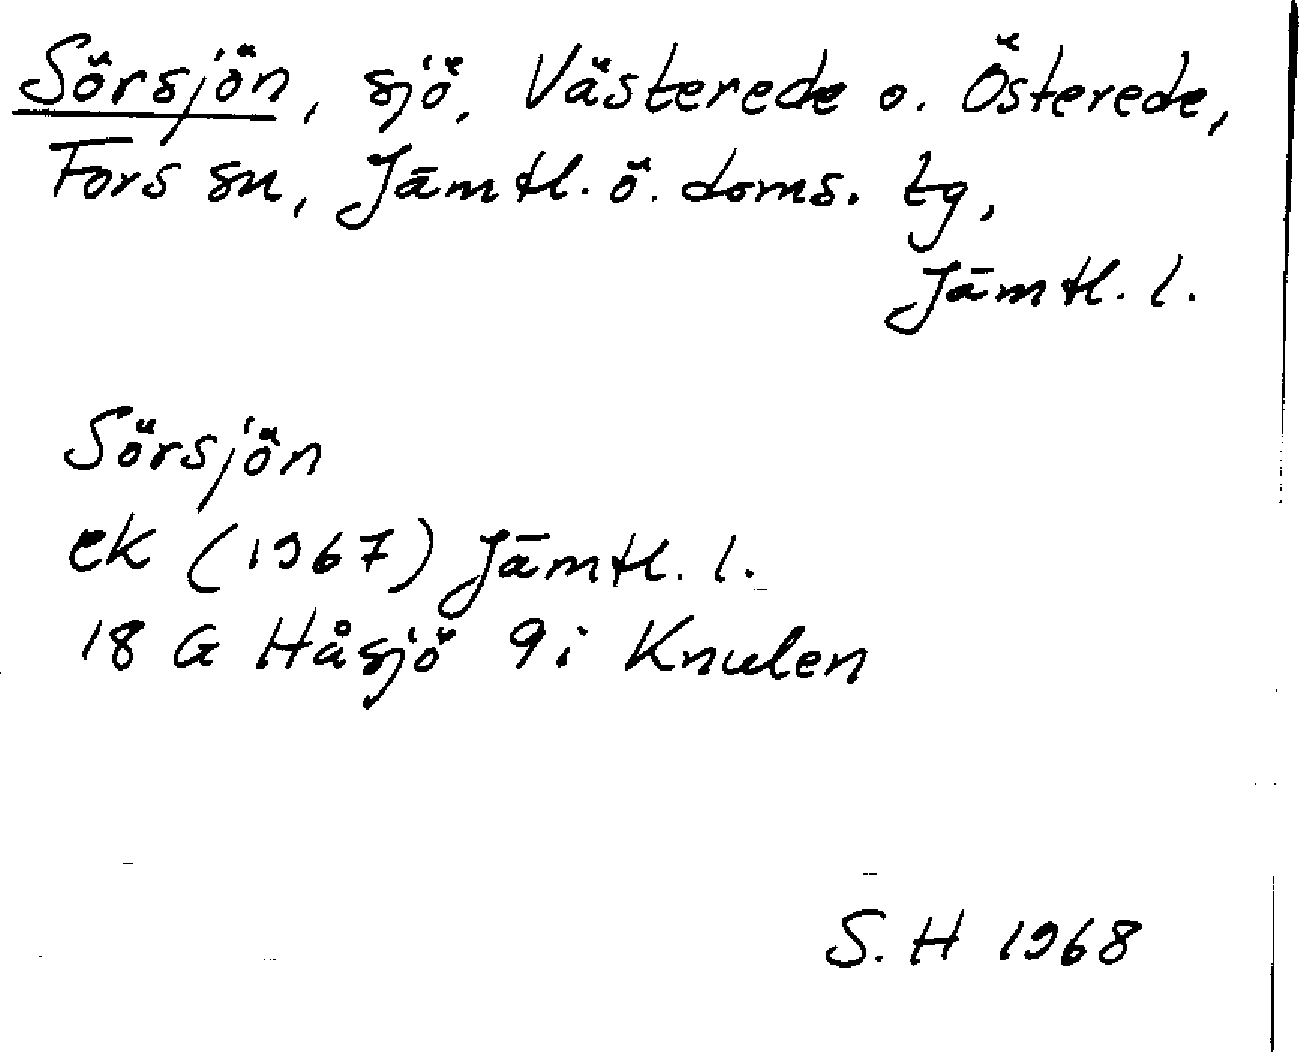 Sörsjön, sjö, Västerede o. Österede,
Fors sn, Jämtl. ö. doms. tg,
Jämtl. l.
Sörsjön
ek (1967) Jämtl. l.
18 G Håsjö 9i Knulen
S. H 1968